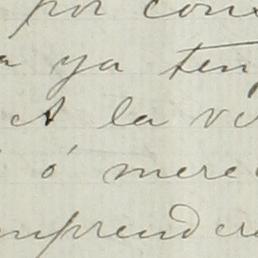 por cons
a ya ten
A la ve
ó mere
mprender